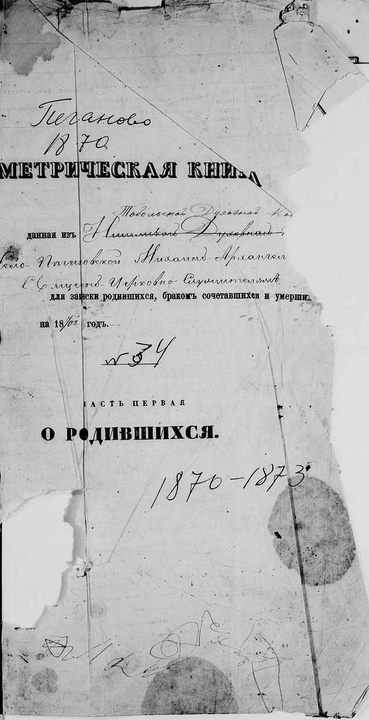 Пеганово
1870
МЕТРИЧЕСКАЯ КНИГА
Тобольской Духовной
данная изъ
Михаило-Архангел
Церковно служителямъ
для записки родившихся, бракомъ сочетавшихся и умерши
на 1870 годъ.
№ 34
ЧАСТЬ ПЕРВАЯ
О РОДИВШИХСЯ.
1870-1873